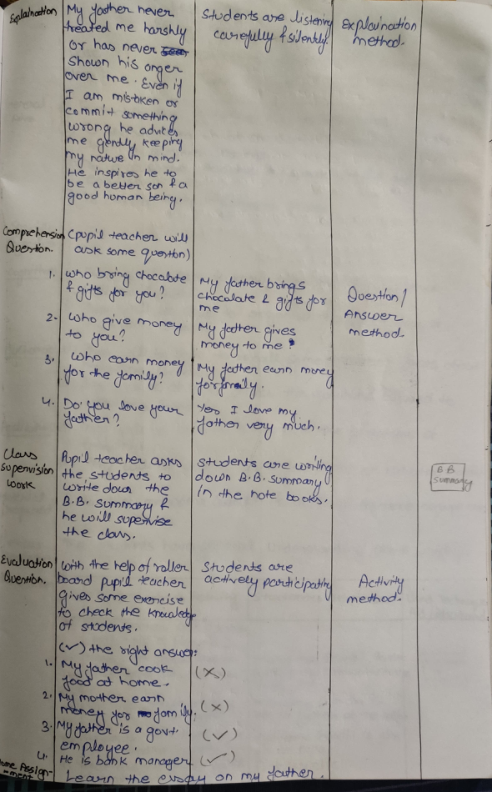 Explaination
My father never
treated me harshly
or has never
shown his anger
over me. Even if
I am mistaken or
commit something
wrong he advices
me gently, keeping
my nature in mind.
He inspires he to
be a better son & a
good human being.
Students are listening
carefully & silently.
Explaination
method.
Comprehension
Question.
(pupil teacher will
ask some question)
1. who bring chocolate
& gifts for you?
My father brings
chocolate & gifts for
me
Question/
Answer
method.
2. who give money
to you?
My father gives
money to me.
3. who earn money
for the family?
My father earn money
for family.
4. Do you love your
father?
Yes I love my
father very much.
Class
supervision
work
Pupil teacher asks
the students to
write down the
B.B. summary &
he will supervise
the class.
Students are writing
down B.B. summary
in the note books.
B.B.
summary
Evaluation
Question.
with the help of roller
board pupil teacher
gives some exercise
to check the knowledge
of students.
Students are
actively participating
Activity
method.
(✓) the right answer:
1. My father cook
food at home.
(×)
2. My mother earn
money for family.
(×)
3. My father is a govt.
employee.
(✓)
4. He is bank manager.
(✓)
Home Assign-
ment
Learn the essay on my father.